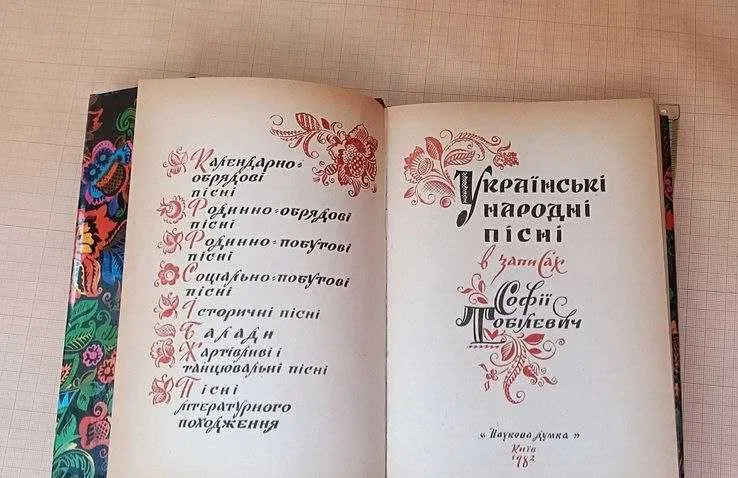 Календарно-
обрядові
пісні
Родинно-обрядові
пісні
Родинно-побутові
пісні
Соціально-побутові
пісні
Історичні пісні
Балади
Жартівливі і
танцювальні пісні
Пісні
літературного
походження
Українські
народні
пісні
в записах
Софії
Тобілевич
«Наукова думка»
Київ
1982